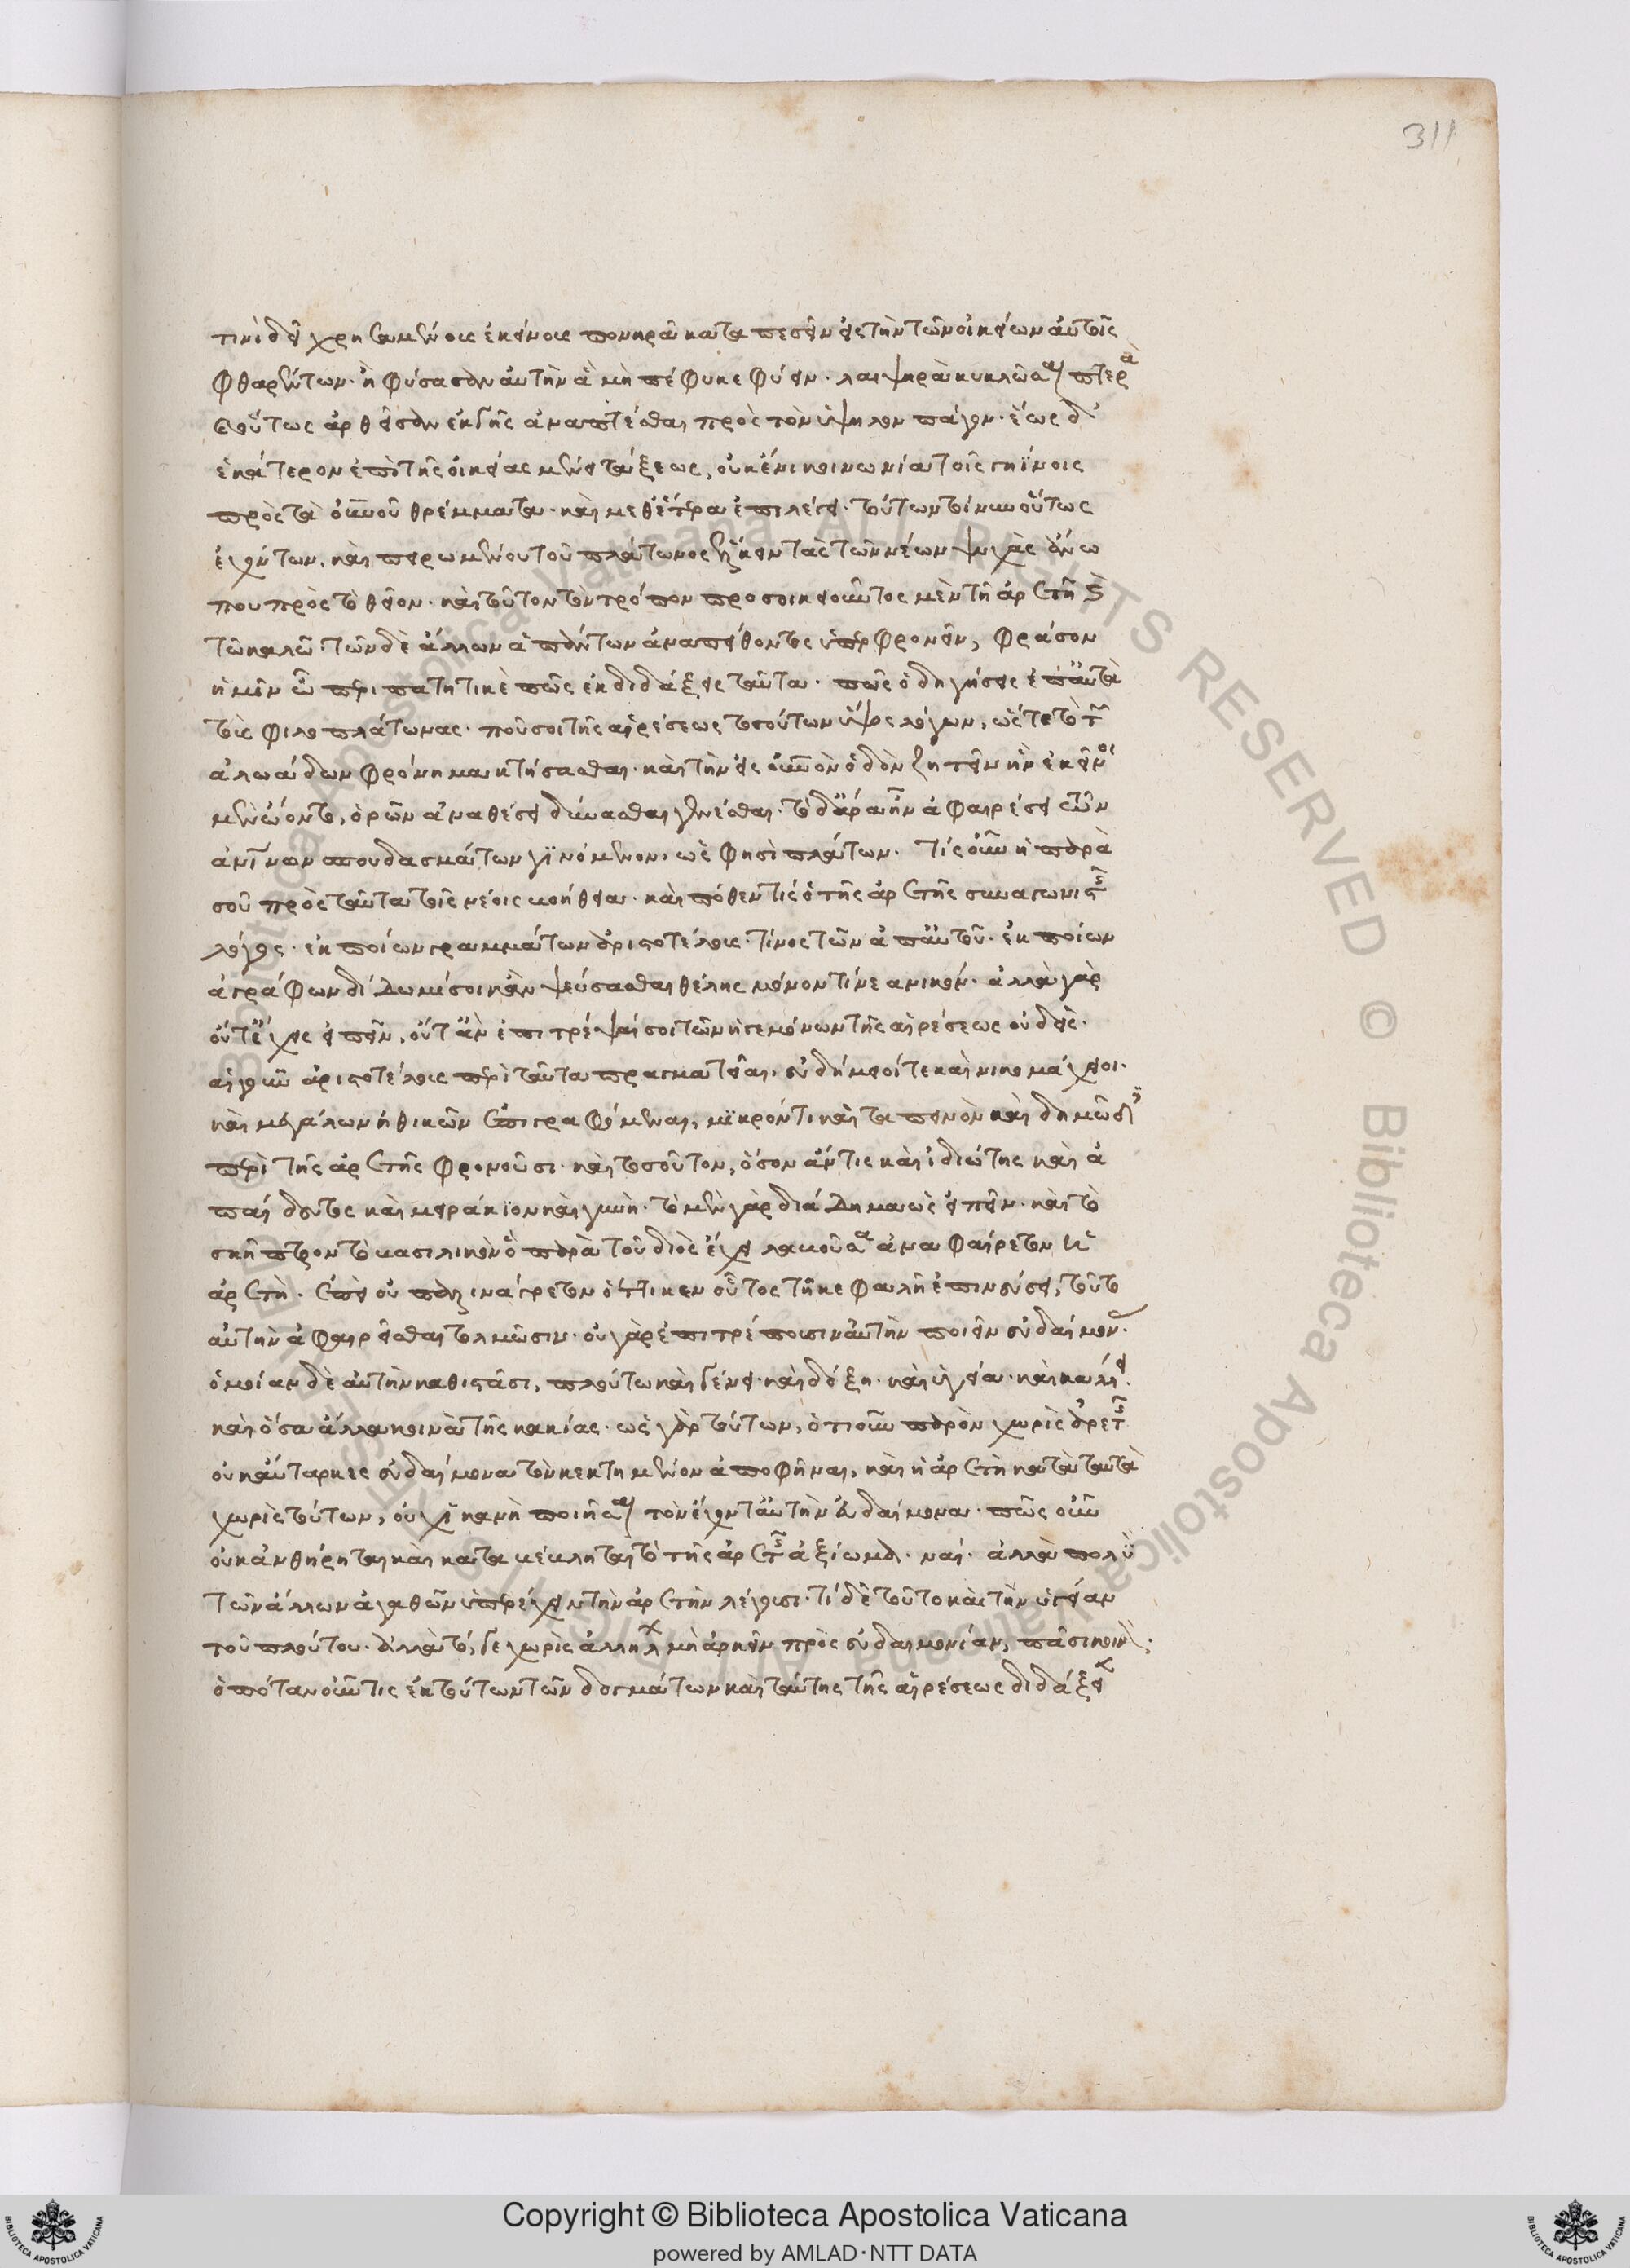 311
τινὶ δεῖ χρησαμένοις ἐκείνοις πονηρᾶ καταπεσεῖν εἰς τὴν τῶν οἰκείων αὐτοῖς
φθαρέντων. ἢ φύσασαν αὐτὴν ἃ μὴ πέφυκε φύειν. λαιψηρὰ κυκλῶσαι πτερὰ
οὕτως ἀρθεῖσαν ἐκ γῆς ἀναπτέσθαι πρὸς τὸν ὑψηλὸν πάγον. ἕως δ'
ἑκάτερον ἐπὶ τῆς οἰκείας μένει τάξεως, οὐκ ἔνι κοινωνία τοῖς γηΐνοις
πρὸς τὰ οὐρανοῦ θρέμματα. καὶ μεθ' ἕτερα ἐπιλέγει. τούτων τοίνυν οὕτως
ἐχόντων, καὶ πειρωμένου τοῦ πλάτωνος ἕλκειν τὰς τῶν νέων ψυχὰς ἄνω
που πρὸς τὸ θεῖον. καὶ τοῦτον τὸν τρόπον προσοικειοῦντος μὲν τῆ ἀρετῆ καὶ
τῶ καλῶ. τῶν δὲ ἄλλων ἁπάντων ἀναπείθοντος ὑπερφρονεῖν, φράσον
ἡμῖν ὦ περιπατητικὲ πῶς ἐκδιδάξεις ταῦτα. πῶς ὁδηγήσεις ἐπ' αὐτὰ
τοὺς φιλοπλάτωνας. ποῦ σοι τῆς αἱρέσεως τοσοῦτον ὕψος λόγων, ὥστε τὸ τῶν
ἀλωάδων φρόνημα κτήσασθαι. καὶ τὴν εἰς οὐρανὸν ὁδὸν ζητεῖν ἣν ἐκεῖνοι
μὲν ὤοντο, ὀρῶν ἀναθέσει δύνασθαι γενέσθαι. τὸ δ' ἄρα ἦν ἀφαιρέσει τῶν
ἀνθρωπίνων σπουδασμάτων γϊνόμενον, ὥς φησὶ πλάτων. Τίς οὖν ἡ παρὰ
σοῦ πρὸς ταῦτα τοῖς νέοις βοήθεια. καὶ πόθεν τίς ὁ τῆς ἀρετῆς συναγωνιστὴς
λόγος. ἐκ ποίων γραμμάτων ἀριστοτέλους. τίνος τῶν ἀπ' αὐτοῦ. ἐκ ποίων
ἀγράφων δίδωμί σοι κἂν ψεύσασθαι θέλης μόνον τί νεανικόν. ἀλλὰ γὰρ
οὔτ' ἔχεις εἰπεῖν, οὔτ' ἂν ἐπιτρέψαί σοι τῶν ἡγεμόνων τῆς αἱρέσεως οὐδείς.
αἱ γοῦν ἀριστοτέλους περὶ ταῦτα πραγματεῖαι. εὐδήμειοί τε καὶ νικομάχειοι.
καὶ μεγάλων ἠθικῶν ἐπιγραφόμεναι, μϊκρόν τι καὶ ταπεινὸν καὶ δημῶδες
περὶ τῆς ἀρετῆς φρονοῦσι. καὶ τοσοῦτον, ὅσον ἄν τις καὶ ἰδιώτης καὶ ἀ
παίδευτος καὶ μειράκϊον καὶ γυνή. τὸ μὲν γὰρ διάδημα ὡς εἰπεῖν. καὶ τὸ
σκῆπτρον τὸ βασιλικὸν ὃ παρὰ τοῦ διὸς ἔχει λαβοῦσα ἀναφαίρετον ἡ
ἀρετή. ἐπεὶ οὐ παλινάγρετον ὅττι κεν οὗτος τῆ κεφαλῆ ἐπινεύσει, τοῦτο
αὐτὴν ἀφαιρεῖσθαι τολμῶσιν. οὐ γὰρ ἐπιτρέπουσιν αὐτὴν ποιεῖν εὐδαίμονας.
ὁμοίαν δὲ αὐτὴν καθιστᾶσι, πλούτω καὶ γένει. καὶ δόξη. καὶ ὑγεία. καὶ κάλλει.
καὶ ὅσα ἄλλα κοινὰ τῆς κακίας. ὡς γὰρ τούτων, ὁτιοῦν παρὸν χωρὶς ἀρετῆς
οὐκ αὔταρκες εὐδαίμονα τὸν κεκτημένον ἀποφῆναι, καὶ ἡ ἀρετὴ κατὰ ταυτὰ
χωρὶς τούτων, οὐχ ἱκανὴ ποιῆσαι τὸν ἔχοντ' αὐτὴν εὐδαίμονα. πῶς οὖν
οὐκ ἀνθήρηται καὶ καταβέβληται τὸ τῆς ἀρετῆς ἀξίωμα. ναί. ἀλλὰ πολὺ
τῶν ἄλλων ἀγαθῶν ὑπερέχειν τὴν ἀρετὴν λέγουσι. τί δὲ τοῦτο καὶ τὴν ὑγείαν
τοῦ πλούτου. ἀλλὰ τό, γε χωρὶς ἀλλήλων μὴ ἀρκεῖν πρὸς εὐδαιμονίαν, πᾶσι κοινόν.
ὁπόταν οὖν τις ἐκ τούτων τῶν δογμάτων καὶ ταύτης τῆς αἱρέσεως διδάξει